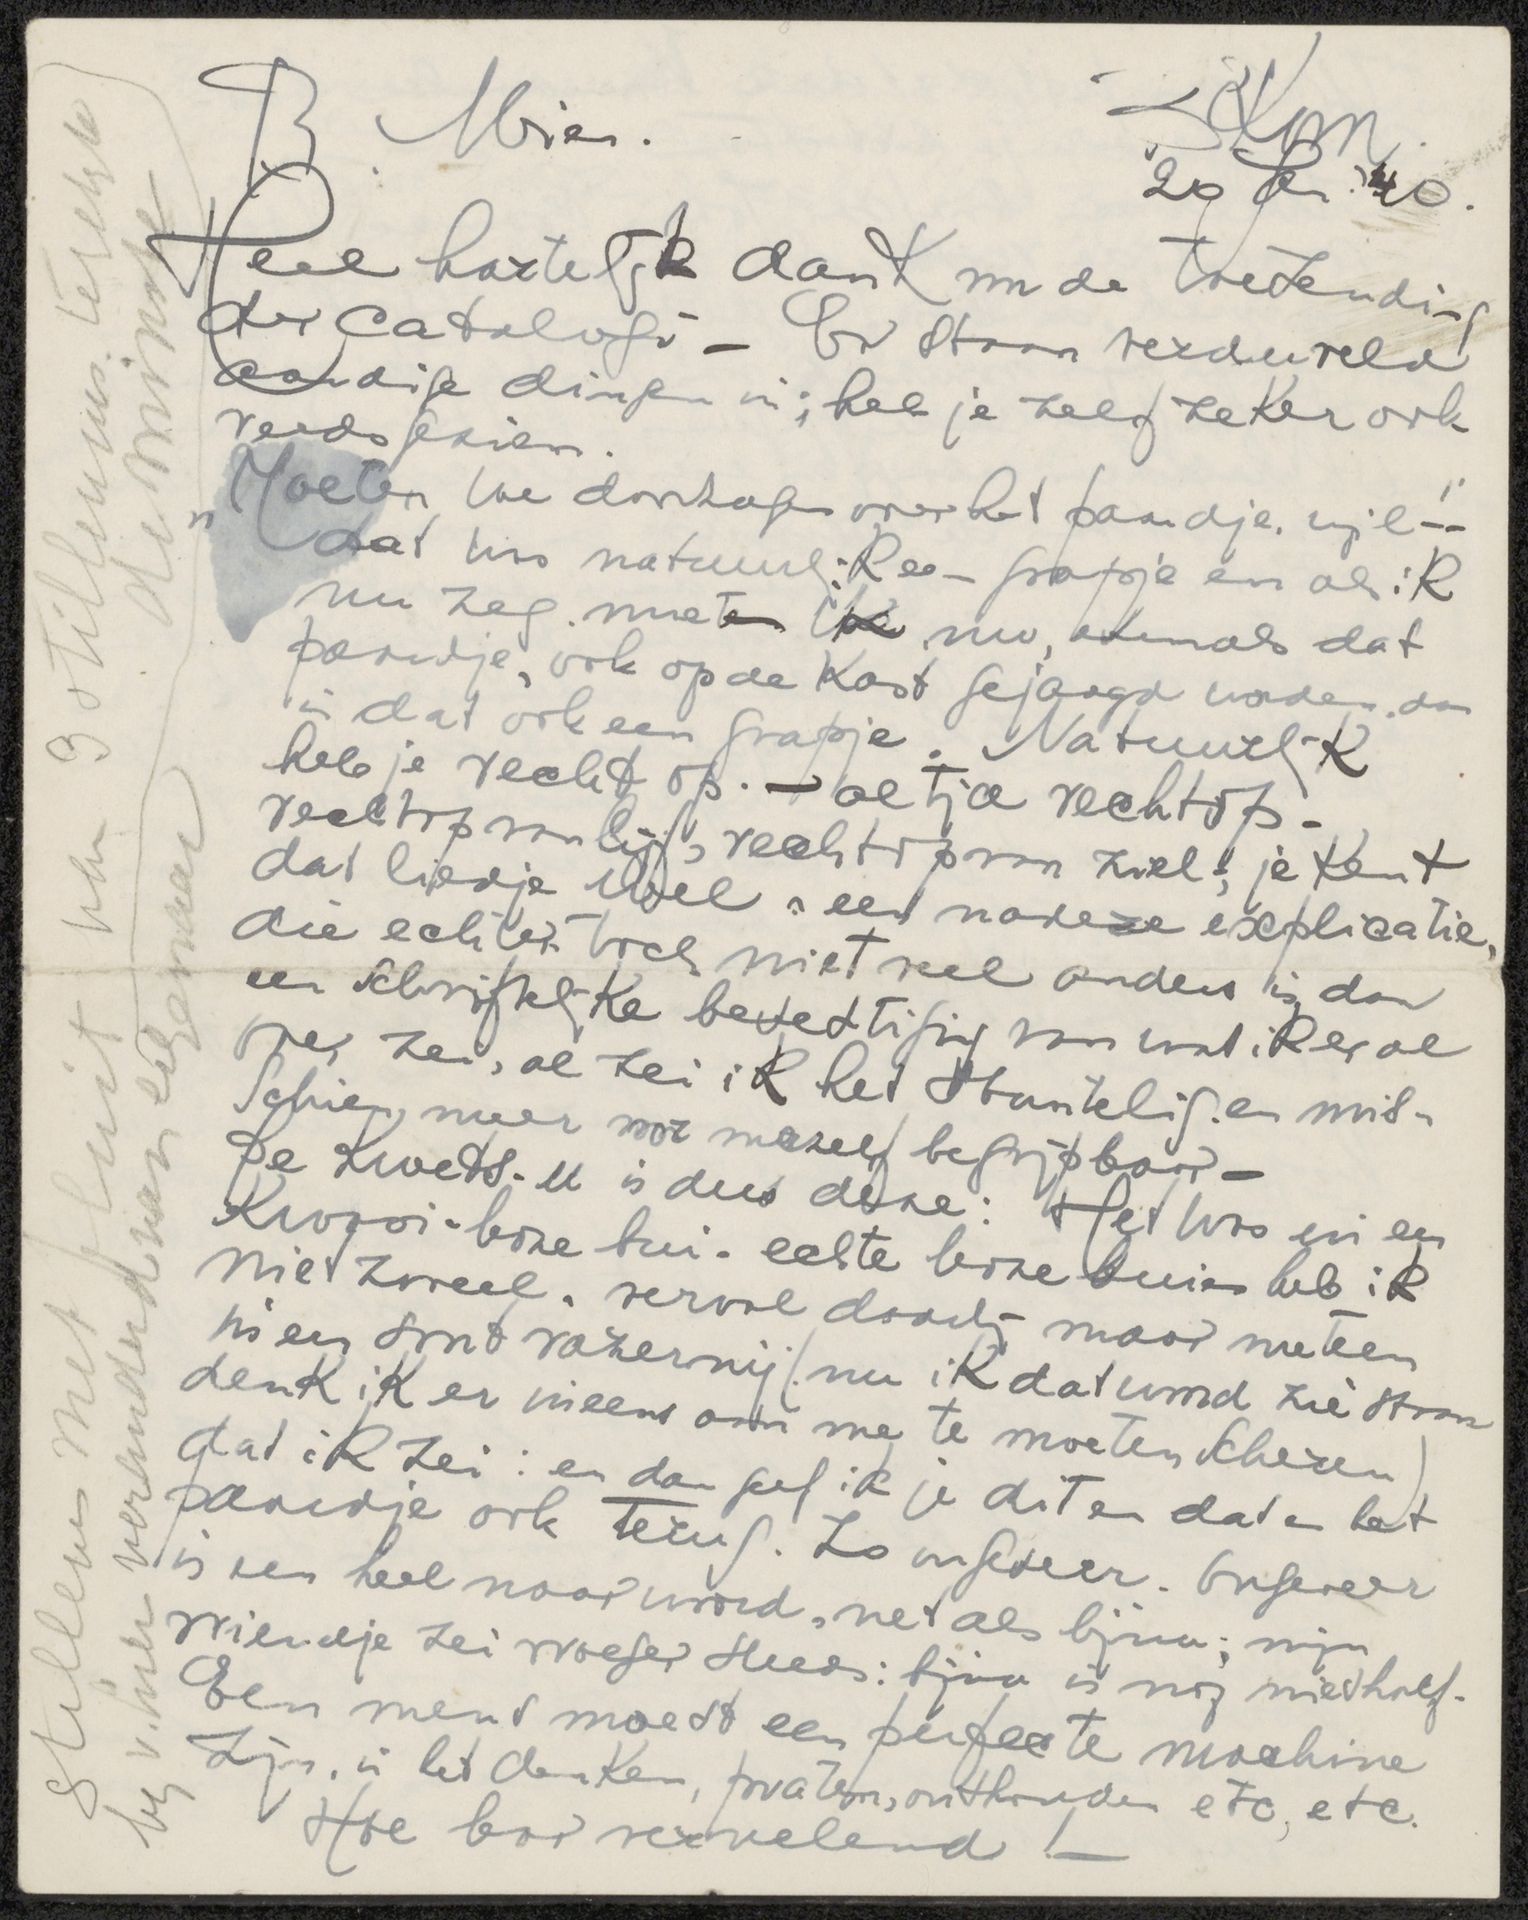 B. Mies.
20 Jan. '40.
Heel hartelijk dank vn de toezending
der catalogi – Er staan verduveld
aardige dingen in; heb je zelf zeker ook
reeds gezien.
"Moeten we doorzagen over het paardje, mijl –"
dat was natuurlijk een grapje en als ik
nu zeg. moeten nu, alsmede dat
paardje, ook op de kast gejaagd worden, dan
is dat ook een grapje. Natuurlijk
heb je recht op. – altja rechtop –
rechtop van lijf, rechtop van ziel", je kent
dat liedje wel, een nadere explicatie,
die echter toch niet veel anders is, dan
een schriftelijke bevestiging van wat ik er al
over zei, al zei ik het stuntelig en mis-
schien, meer voor mezelf begrijpbaar –
De kwets.u is dus deze: Het was in een
kwaoi-boze bui. echte boze buien heb ik
niet zoveel, verval daarbij maar meteen
in een soort razernij (nu ik dat woord zie staan
denk ik er ineens aan me te moeten scheren)
dat ik zei: en dan geef ik je dit en dat en het
paardje ook terug. Zo ongeveer. Ongeveer
is een heel naar woord, net als bijna; mijn
vriendje zei vroeger steeds: bijna is nog niet half.
Een mens moest een perfecte machine
zijn, in het denken, praten, onthouden etc, etc.
Hoe boos vervelend! –
Stillevens met fluit van 3 stillevens
bij v. hier veranderd van eigenaar